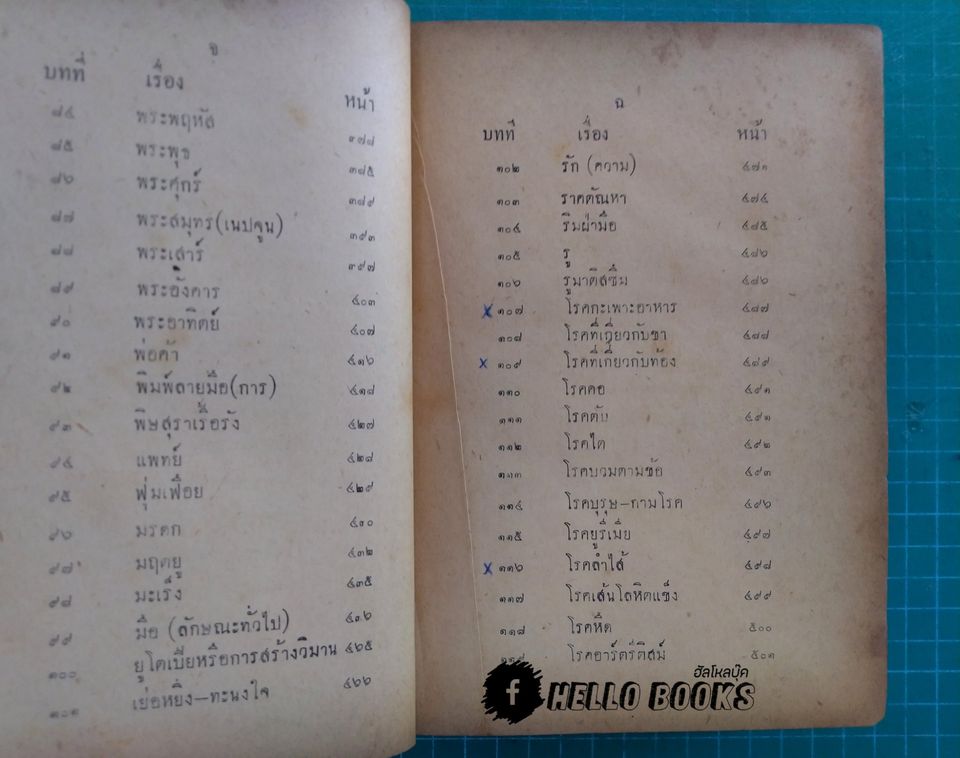 จ
บทที่ เรื่อง หน้า
๘๔ พระพฤหัส ๓๗๘
๘๕ พระพุธ ๓๘๕
๘๖ พระศุกร์ ๓๘๙
๘๗ พระสมุทร(เนปจูน) ๓๙๓
๘๘ พระเสาร์ ๓๙๗
๘๙ พระอังคาร ๔๐๓
๙๐ พระอาทิตย์ ๔๐๗
๙๑ พ่อค้า ๔๑๖
๙๒ พิมพ์ลายมือ(การ) ๔๑๘
๙๓ พิษสุราเรื้อรัง ๔๒๗
๙๔ แพทย์ ๔๒๘
๙๕ ฟุ่มเฟือย ๔๒๙
๙๖ มรดก ๔๓๐
๙๗ มฤตยู ๔๓๒
๙๘ มะเร็ง ๔๓๕
๙๙ มือ (ลักษณะทั่วไป) ๔๓๖
๑๐๐ ยูโตเปียหรือการสร้างวิมาน ๔๖๕
๑๐๑ เย่อหยิ่ง–ทะนงใจ ๔๖๖
ฉ
บทที่ เรื่อง หน้า
๑๐๒ รัก (ความ) ๔๗๑
๑๐๓ ราคตัณหา ๔๗๔
๑๐๔ ริมฝ่ามือ ๔๘๕
๑๐๕ รู ๔๘๖
๑๐๖ รูมาติสซิ่ม ๔๘๖
x ๑๐๗ โรคกะเพาะอาหาร ๔๘๗
๑๐๘ โรคที่เกี่ยวกับขา ๔๘๘
x ๑๐๙ โรคที่เกี่ยวกับท้อง ๔๘๙
๑๑๐ โรคคอ ๔๙๑
๑๑๑ โรคตับ ๔๙๑
๑๑๒ โรคไต ๔๙๒
๑๑๓ โรคบวมตามข้อ ๔๙๓
๑๑๔ โรคบุรุษ–กามโรค ๔๙๖
๑๑๕ โรคยูรีเมีย ๔๙๗
x ๑๑๖ โรคลำไส้ ๔๙๘
๑๑๗ โรคเส้นโลหิตแข็ง ๔๙๙
๑๑๘ โรคหืด ๕๐๐
๑๑๙ โรคอาร์ตรีติสม์ ๕๐๑
ฮัลโหลบุ๊ค
f HELLO BOOKS